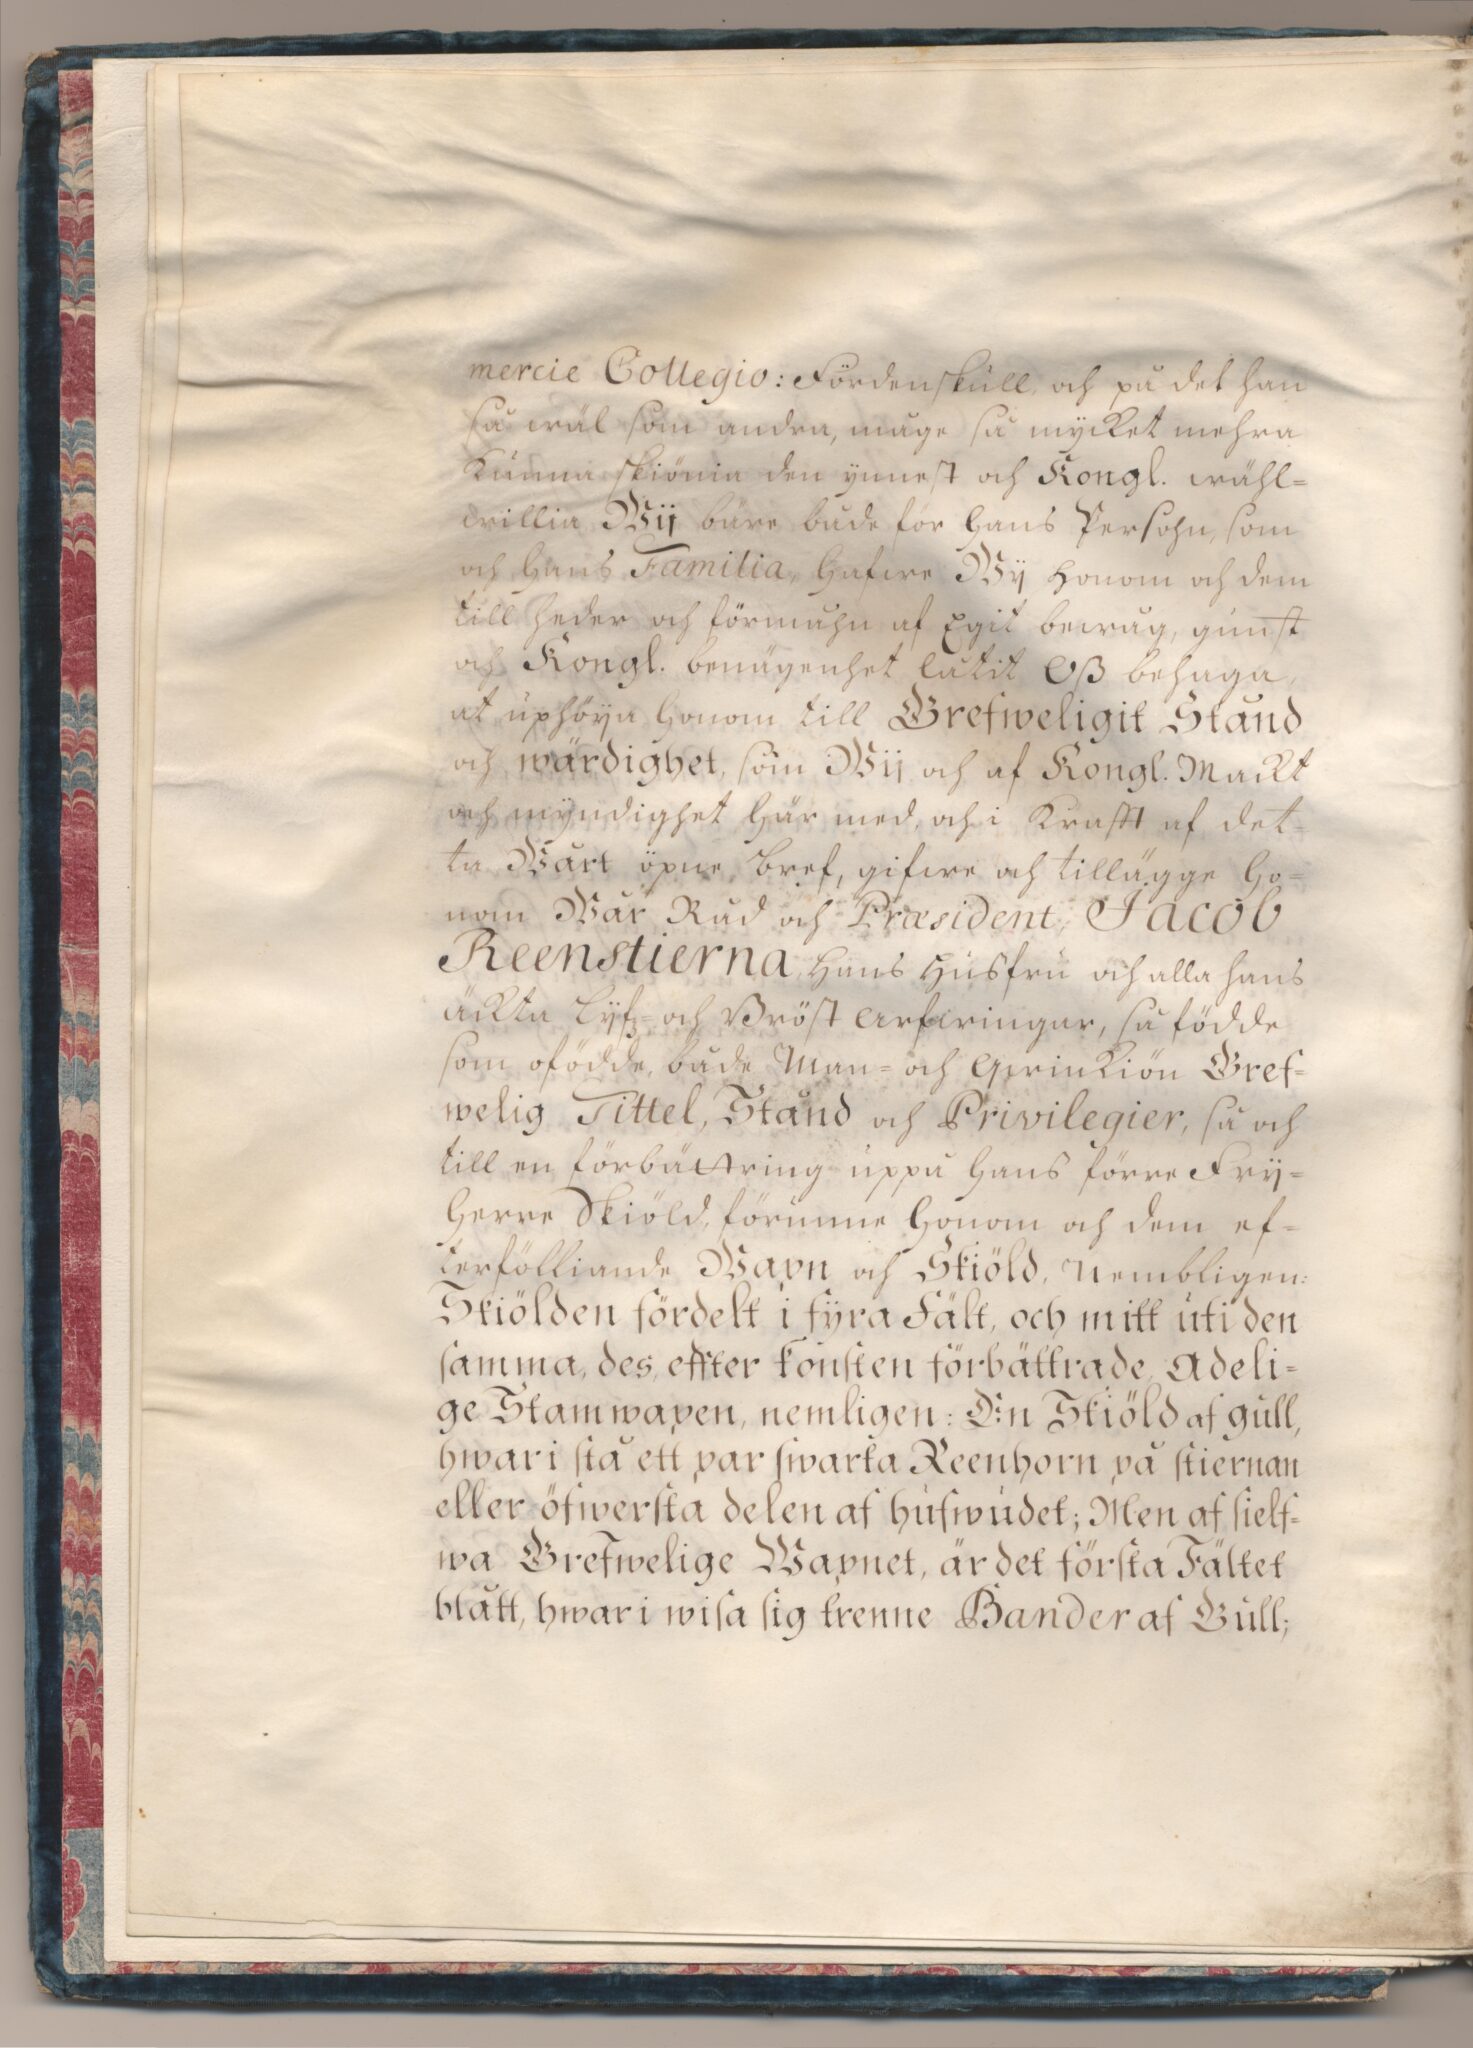 mercie Collegio: Fördenskull, och på det han
så wäl som andra, måge så mycket mehra
kunna skiönia den ynnest och Kongl. wähl-
willia Wij bäre både för hans Persohn, som
och hans Familia, hafwe Wij honom och dem
till heder och förmåhn af Egit bewåg, gunst
och Kongl. benägenhet låtit Oß behaga,
at uphöya honom till Grefweligit Stånd
och wärdighet, som Wij och af Kongl. Mackt
och myndighet här med, och i Krafft af det-
ta Wårt öpne bref, gifwe och tillägge ho-
nom Wår Råd och Præsident, Jacob
Reenstierna, hans husfru och alla hans
äckta Lyfz- och Bröst arfwingar, så födde
som ofödde, både Man- och qwinkiön Gref-
welig Tittel, Stånd och Privilegier, så och
till en förbättring uppå hans förre Fry-
herre Skiöld, förunne honom och dem ef-
terfölliande Wapn och Skiöld, Nembligen:
Skiölden fördelt i fyra Fält, och mitt uti den
samma, des, effter konsten förbättrade, Adeli-
ge Stamwapen, nemligen: En Skiöld af gull,
hwari stå ett par swarta Reenhorn på stiernan
eller öfwersta delen af hufwudet; Men af sielf-
wa Grefwelige Wapnet, är det första Fältet
blått, hwari wisa sig trenne Bander af Gull;